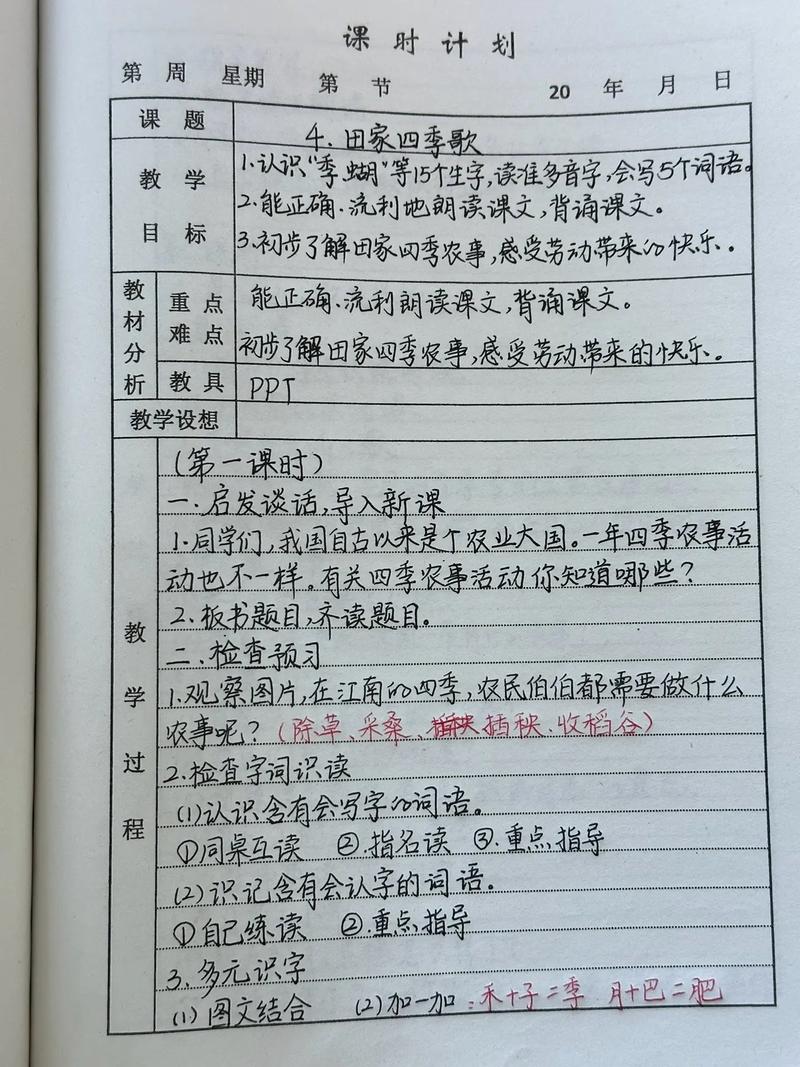 课时计划
第 周 星期 第 节 20 年 月 日
课题 4. 田家四季歌
教学目标
1.认识“季、蝴”等15个生字,读准多音字,会写5个词语。
2.能正确、流利地朗读课文,背诵课文。
3.初步了解田家四季农事,感受劳动带来的快乐。
教材分析
重点难点
能正确、流利朗读课文,背诵课文。
初步了解田家四季农事,感受劳动带来的快乐。
教具 PPT
教学设想
教学过程
(第一课时)
一.启发谈话,导入新课
1.同学们,我国自古以来是个农业大国。一年四季农事活
动也不一样。有关四季农事活动你知道哪些?
2.板书题目,齐读题目。
二.检查预习
1.观察图片,在江南的四季,农民伯伯都需要做什么
农事呢?(除草、采桑、插秧、收稻谷)
2.检查字词识读
(1)认识含有会写字的词语。
①同桌互读 ②.指名读 ③.重点指导
(2)识记含有会认字的词语。
①自己练读 ②.重点指导
3.多元识字
(1)图文结合 (2)加一加:禾+子=季 月+巴=肥